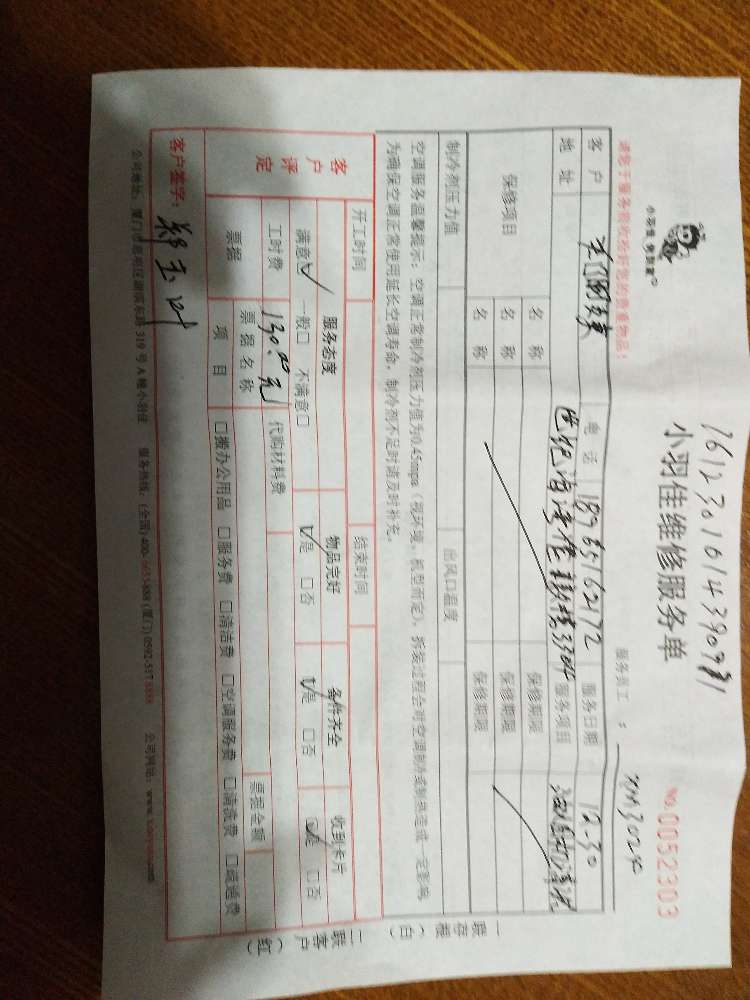 161230161439098
小羽佳维修服务单
小羽佳 快到家
NO.0052303
请您于服务前收拾好您的贵重物品！
服务员工：XM3024
客户 电话 18965162172 服务日期 12-30
地址 服务项目 油烟机清洗
保修项目 名称 保修期限
名称 保修期限
名称 保修期限
制冷剂压力值 出风口温度
空调服务温馨提示：空调正常制冷剂压力值为0.45mpa（视环境、机型而定），拆装过程会对空调制冷或制热造成一定影响
为确保空调正常使用延长空调寿命，制冷剂不足时请及时补充。
一联存根（白）
二联客户（红）
开工时间 结束时间
客户评定 服务态度 物品完好 备件齐全 收到卡片
满意☑ 一般□ 不满意□ ☑是 □否 ☑是 □否 ☑是 □否
工时费 130.00元 代购材料费
票据 票据名称 票据金额
项目 □搬办公用品 □服务费 □清洁费 □空调服务费 □清洗费 □疏通费
客户签字：郑玉叶
公司地址：厦门市思明区湖滨东路319号A幢小羽佳 服务热线：(全国)400- -888 (厦门)0592-557 8888 公司网址：www. .com